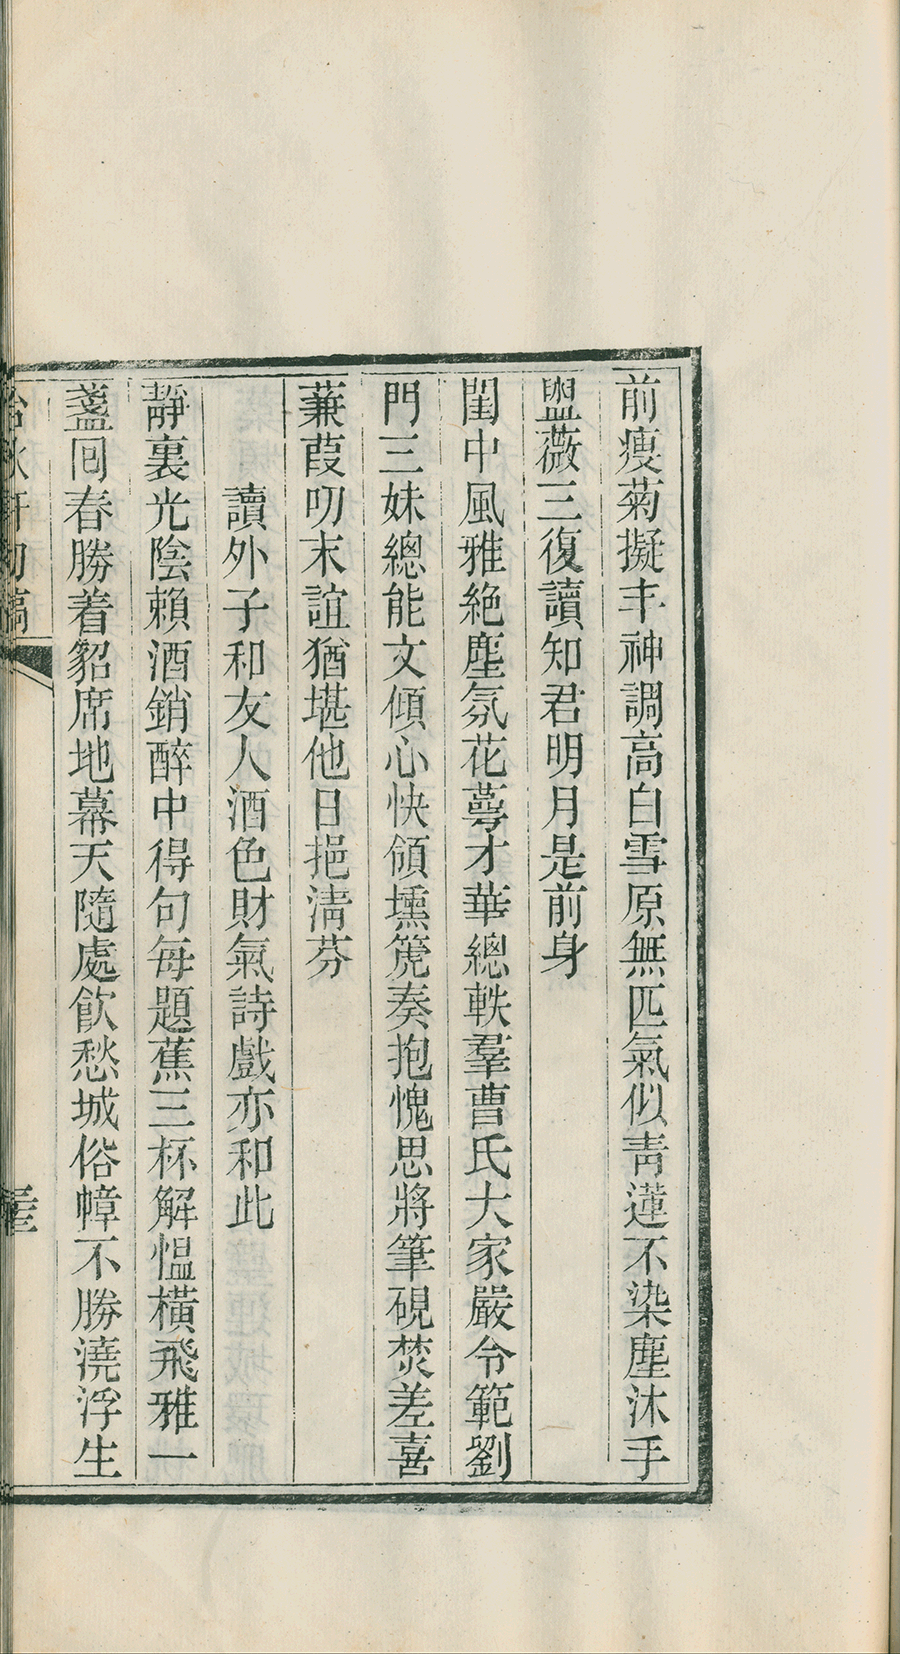 前瘦菊擬丰神調高白雪原無匹氣似青蓮不染塵沐手
盥薇三復讀知君明月是前身
閨中風雅絶塵氛花蕚才華總軼羣曹氏大家嚴令範劉
門三妹總能文傾心快領壎箎奏抱愧思將筆硯焚差喜
蒹葭叨末誼猶堪他日挹淸芬
讀外子和友人酒色財氣詩戲亦和此
靜裏光陰賴酒銷醉中得句每題蕉三杯解愠橫飛雅一
盞回春勝着貂席地幕天隨處飮愁城俗幛不勝澆浮生
秋軒初稿